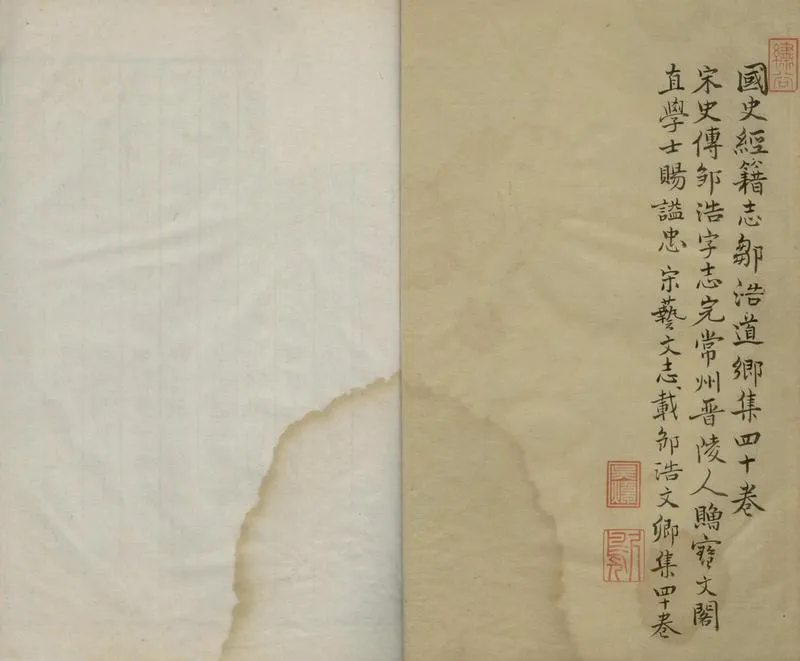 國史經籍志鄒浩道鄉集四十卷
宋史傳邹浩字志完常州晋陵人贈寶文閣
直學士賜謚忠宋藝文志載邹浩文卿集四十卷
繡谷